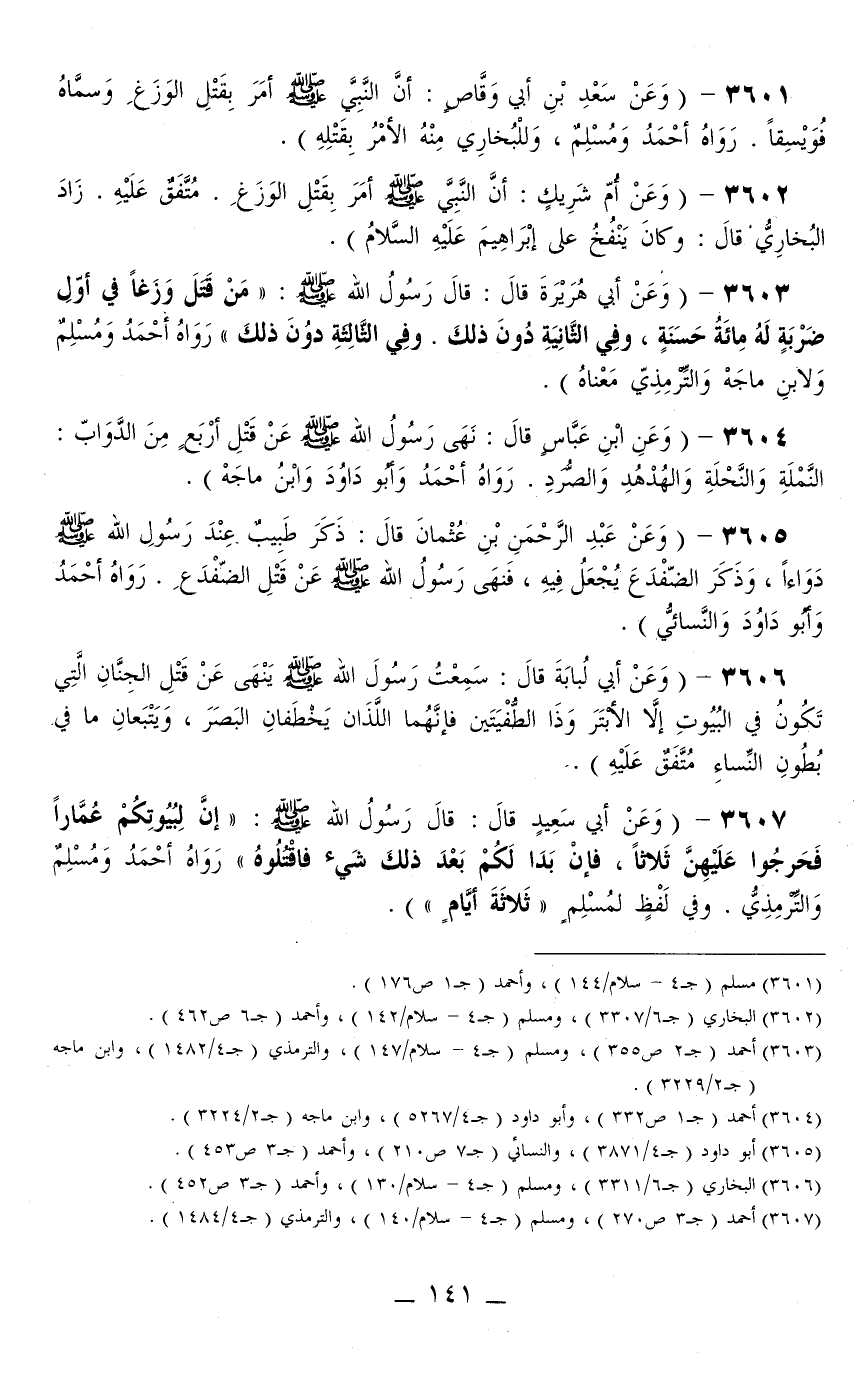 ٣٦٠١ - ( وَعَنْ سَعْدِ بْنِ أبي وَقَّاصٍ : أنَّ النَّبِيَّ ﷺ أمَرَ بِقَتْلِ الوَزَغِ وَسمَّاهُ
فُوَيْسِقاً . رَوَاهُ أحْمَدُ وَمُسْلِمٌ ، وَللْبُخاري مِنْهُ الأمْرُ بِقَتْلِهِ ) .
٣٦٠٢ - ( وَعَنْ أُمّ شَرِيكٍ : أنَّ النَّبِيَّ ﷺ أمَرَ بِقَتْلِ الوَزَغِ . مُتَّفَقٌ عَلَيْهِ . زَادَ
البُخاريُّ قالَ : وكانَ يَنْفُخُ على إبْرَاهِيمَ عَلَيْهِ السَّلامُ ) .
٣٦٠٣ - ( وَعَنْ أبي هُرَيْرَةَ قالَ : قالَ رَسُولُ الله ﷺ : « مَنْ قَتَلَ وَزَغاً في أوّلِ
ضَرْبَةٍ لَهُ مِائَةُ حَسَنَةٍ ، وفِي الثَّانِيَةِ دُونَ ذلكَ . وفِي الثَّالِثَةِ دوُنَ ذلكَ » رَوَاهُ أحْمَدُ وَمُسْلِمٌ
وَلابنِ ماجَهْ وَالتِّرْمِذيّ مَعْناهُ ) .
٣٦٠٤ - ( وَعَنِ ابْنِ عَبَّاسٍ قالَ : نَهَى رَسُولُ الله ﷺ عَنْ قَتْلِ أرْبَعٍ مِنَ الدَّوَابّ :
النَّمْلَةِ وَالنَّحْلَةِ وَالهُدْهُدِ وَالصُّرَدِ . رَوَاهُ أحْمَدُ وَأبُو دَاوُدَ وَابْنُ ماجَهْ ) .
٣٦٠٥ - ( وَعَنْ عَبْدِ الرَّحْمَنِ بْنِ عُثْمانَ قالَ : ذَكَرَ طَبِيبٌ عِنْدَ رَسُولِ الله ﷺ
دَوَاءاً ، وَذَكَرَ الضّفْدَعَ يُجْعَلُ فِيهِ ، فَنهَى رَسُولُ الله ﷺ عَنْ قَتْلِ الضّفْدَعِ . رَوَاهُ أحْمَدُ
وَأبُو دَاوُدَ وَالنَّسائيُّ ) .
٣٦٠٦ - ( وَعَنْ أبي لُبابَةَ قالَ : سَمِعْتُ رَسُولَ الله ﷺ يَنْهَى عَنْ قَتْلِ الجِنَّانِ الَّتِي
تَكُونُ في البُيُوتِ إلَّا الأبْتَرَ وَذَا الطُّفْيَتَين فإنَّهُما اللَّذَان يَخْطَفانِ البَصَرَ ، وَيَتْبَعانِ ما في
بُطُونِ النِّساءِ مُتَّفَقٌ عَلَيْهِ ) .
٣٦٠٧ - ( وَعَنْ أبي سَعِيدٍ قالَ : قالَ رَسُولُ الله ﷺ : « إنَّ لِبُيُوتِكُمْ عُمَّاراً
فَحَرجُوا عَلَيْهِنَّ ثَلاثاً ، فإنْ بَدَا لَكُمْ بَعْدَ ذلكَ شَيء فاقْتُلُوهُ » رَوَاهُ أحْمَدُ وَمُسْلِمٌ
وَالتِّرْمِذِيُّ . وفي لَفْظٍ لمُسْلِمٍ « ثَلاثَةَ أيَّامٍ » ) .
(٣٦٠١) مسلم ( جـ٤ - سلام/١٤٤ ) ، وأحمد ( جـ١ ص١٧٦ ) .
(٣٦٠٢) البخاري ( جـ٣٣٠٧/٦ ) ، ومسلم ( جـ٤ - سلام/١٤٢ ) ، وأحمد ( جـ٦ ص٤٦٢ ) .
(٣٦٠٣) أحمد ( جـ٢ ص٣٥٥ ) ، ومسلم ( جـ٤ - سلام/١٤٧ ) ، والترمذي ( جـ١٤٨٢/٤ ) ، وابن ماجه
( جـ٣٢٢٩/٢ ) .
(٣٦٠٤) أحمد ( جـ١ ص٣٣٢ ) ، وأبو داود ( جـ٥٢٦٧/٤ ) ، وابن ماجه ( جـ٣٢٢٤/٢ ) .
(٣٦٠٥) أبو داود ( جـ٣٨٧١/٤ ) ، والنسائي ( جـ٧ ص٢١٠ ) ، وأحمد ( جـ٣ ص٤٥٣ ) .
(٣٦٠٦) البخاري ( جـ٣٣١١/٦ ) ، ومسلم ( جـ٤ - سلام/١٣٠ ) ، وأحمد ( جـ٣ ص٤٥٢ ) .
(٣٦٠٧) أحمد ( جـ٣ ص٢٧٠ ) ، ومسلم ( جـ٤ - سلام/١٤٠ ) ، والترمذي ( جـ١٤٨٤/٤ ) .
_ ١٤١ _